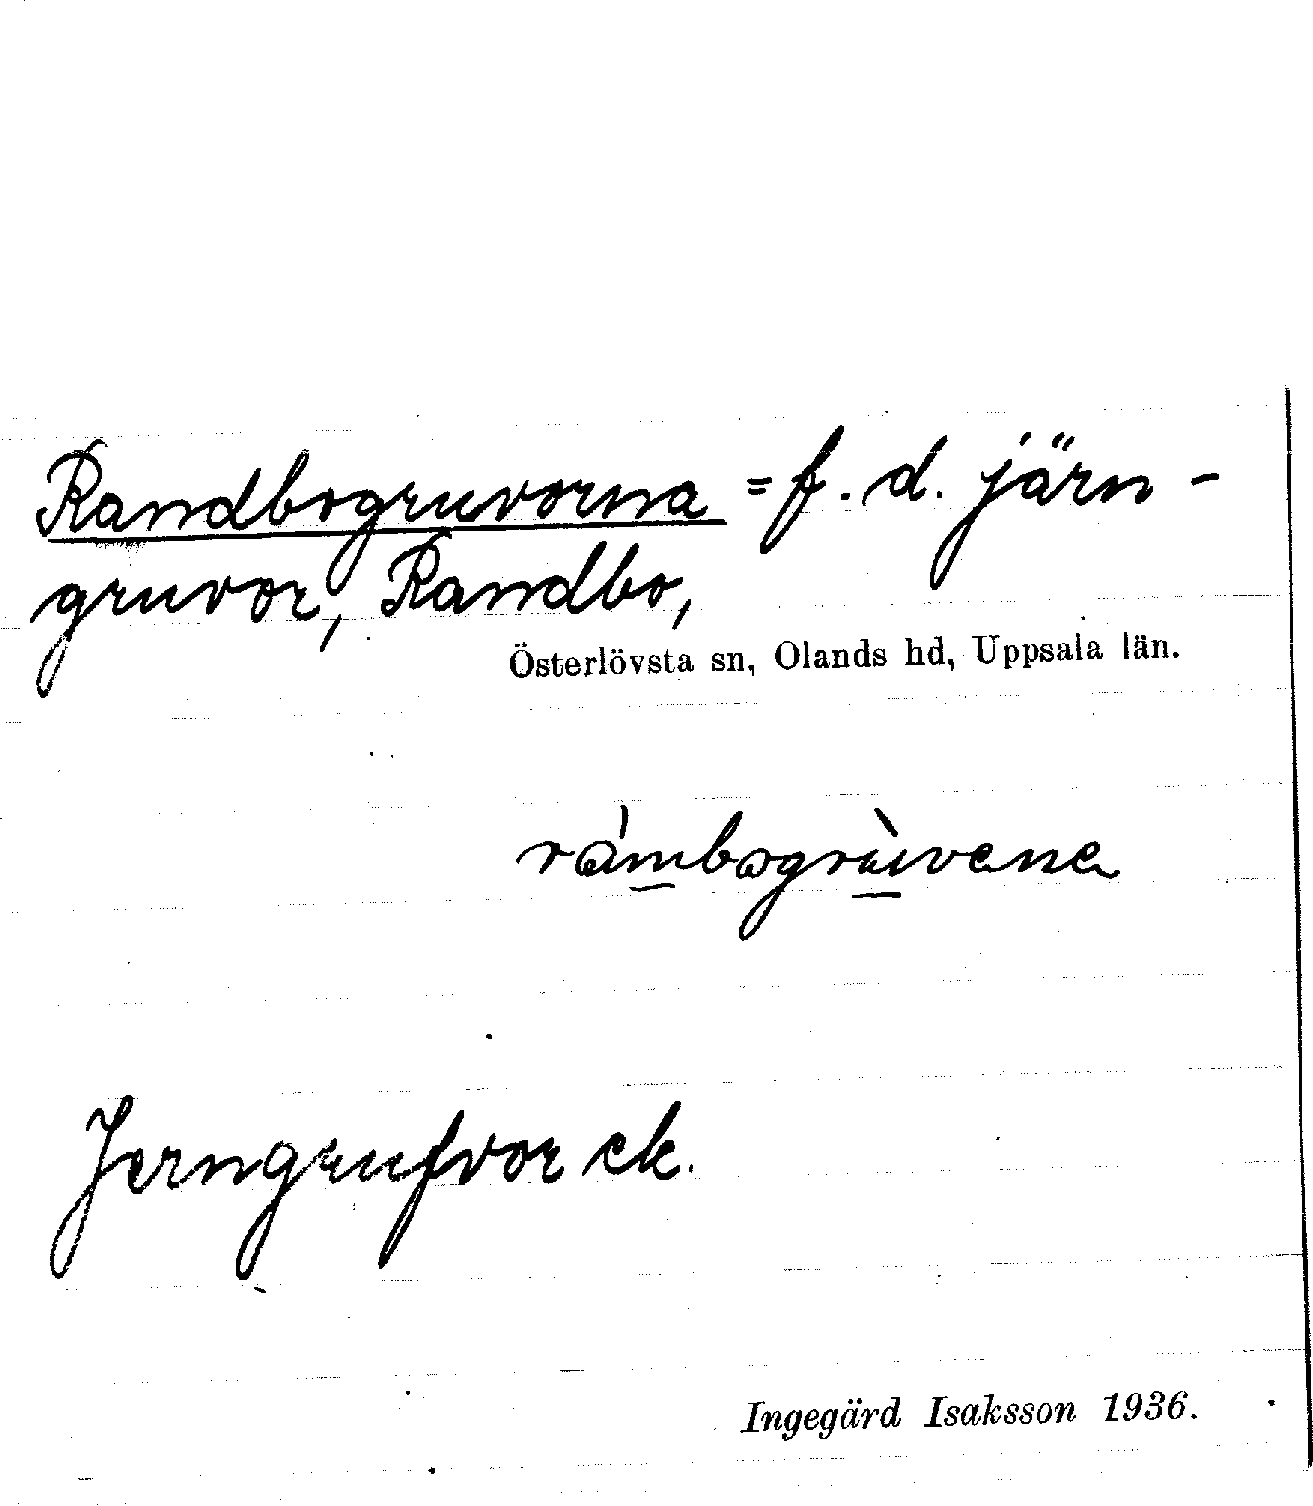 Randbogruvorna = f. d. järn-
gruvor, Randbo,
Österlövsta sn, Olands hd, Uppsala län.
råmbogrùvene
Jerngrufvor ek.
Ingegärd Isaksson 1936.